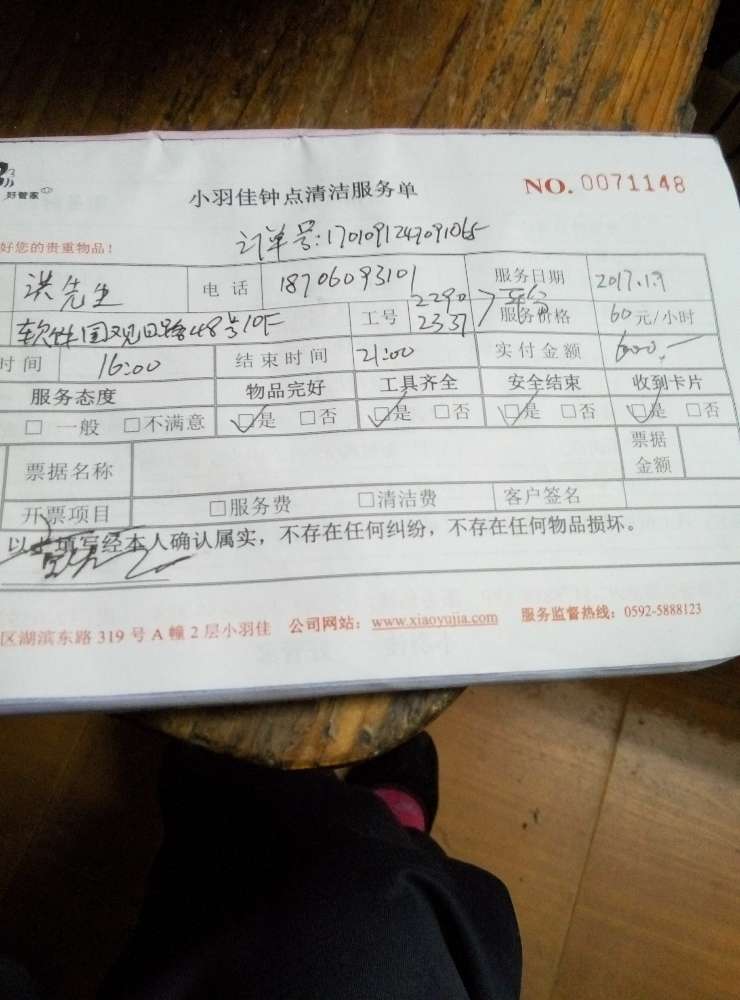 好管家
小羽佳钟点清洁服务单 NO. 0071148
好您的贵重物品!
订单号:1701091247091065
洪先生 电话 18706093101 服务日期 2017.1.9
软件园观日路48号10F 工号 2290 2337 平分 服务价格 60元/小时
时间 16:00 结束时间 21:00 实付金额
服务态度 物品完好 工具齐全 安全结束 收到卡片
□ 一般 □不满意 □是 □否 □是 □否 □是 □否 □是 □否
票据名称 票据金额
开票项目 □服务费 □清洁费 客户签名
以上填写经本人确认属实,不存在任何纠纷,不存在任何物品损坏。
区湖滨东路 319 号 A 幢 2 层小羽佳 公司网站: www.xiaoyujia.com 服务监督热线: 0592-5888123